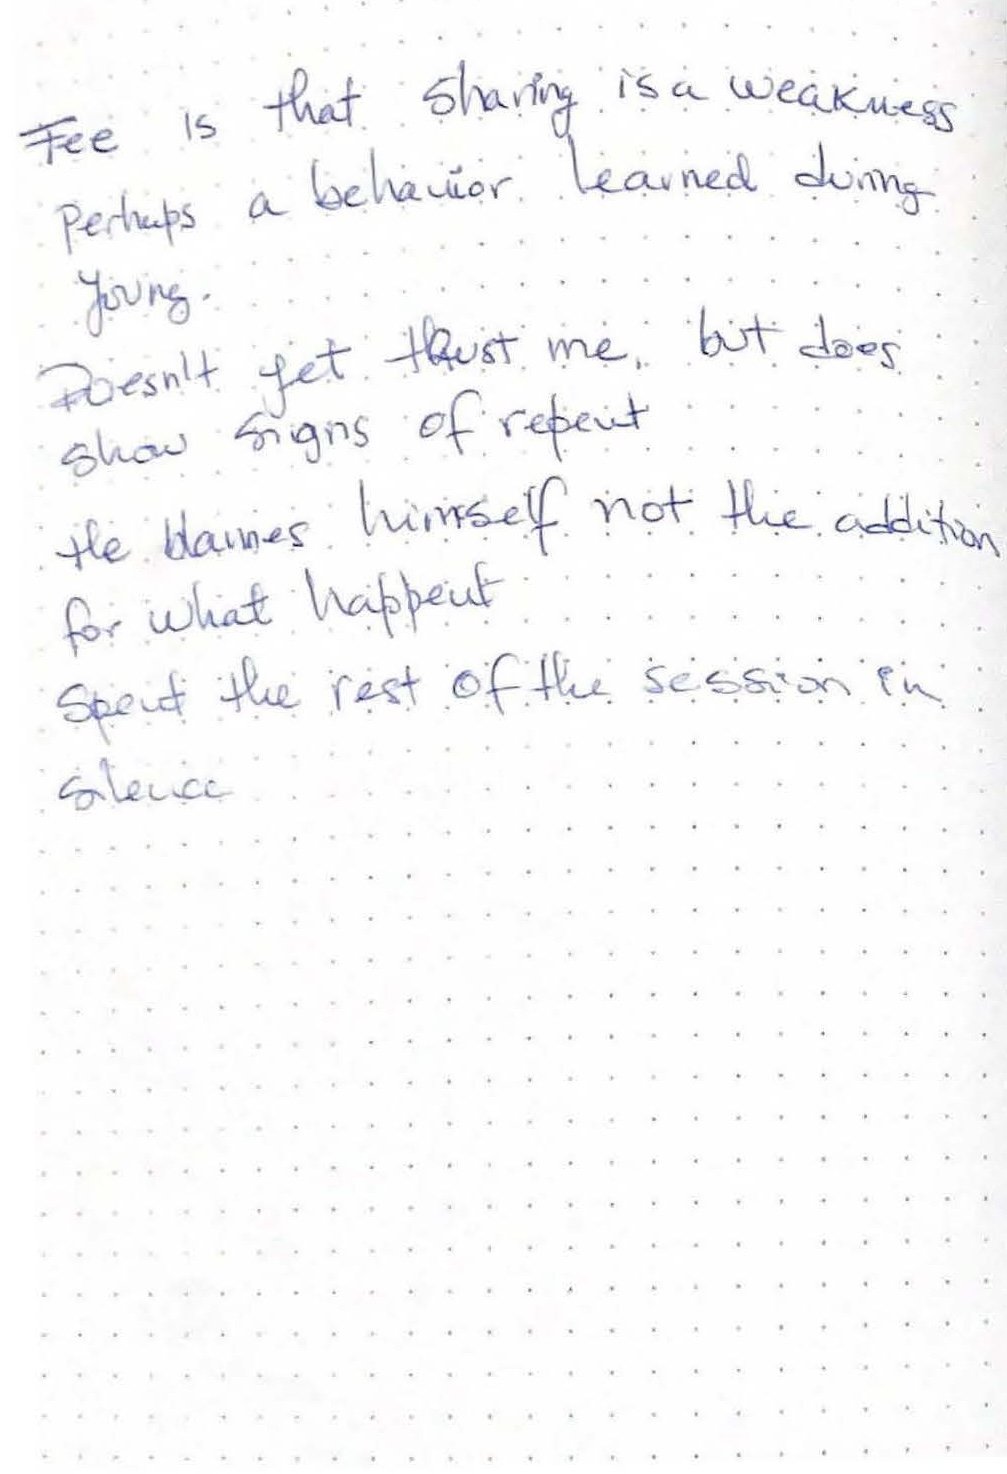 Fee is that sharing is a weakness
perhaps a behavior learned during
young.
Doesn't yet trust me, but does
show signs of repent
He blames himself not the addition
for what happent
Spent the rest of the session in
silence